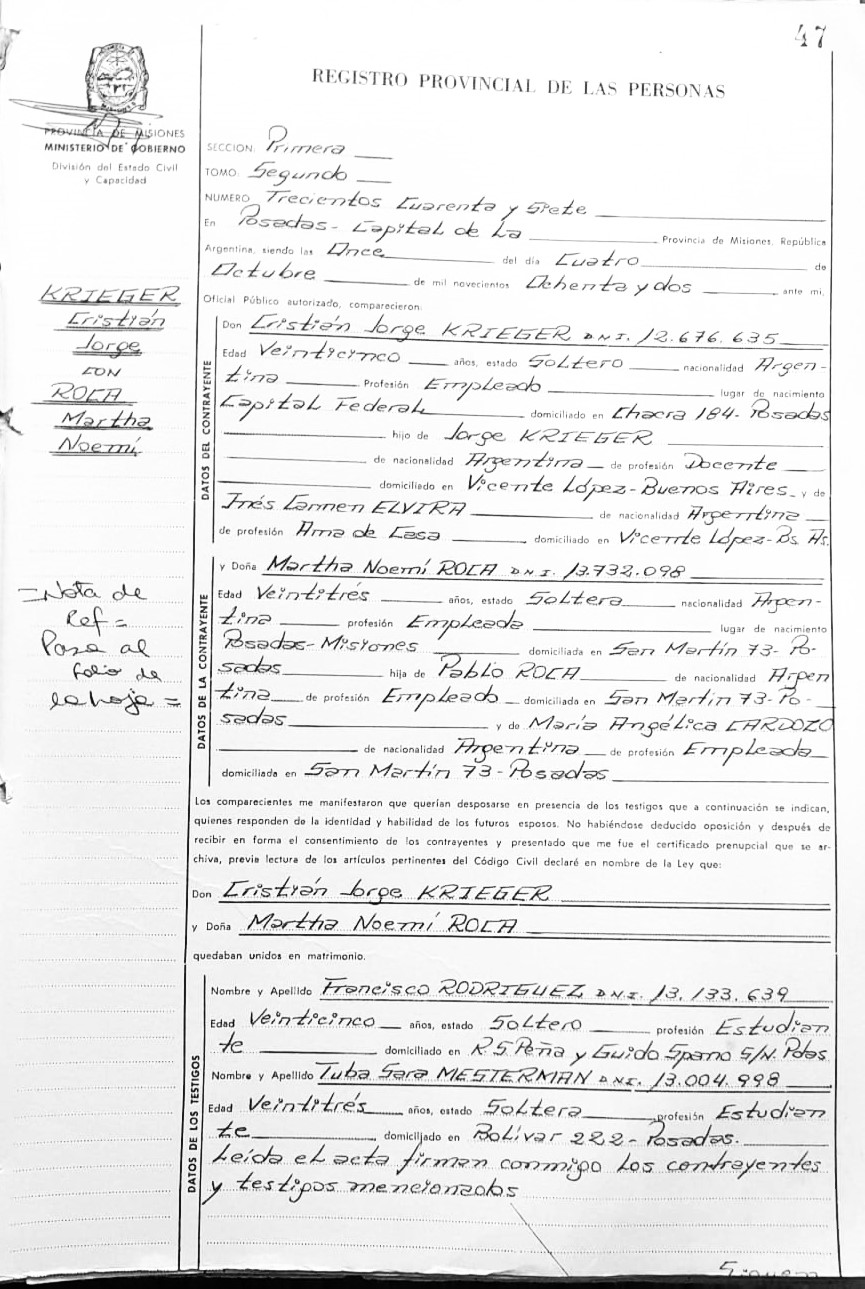 47
REGISTRO PROVINCIAL DE LAS PERSONAS
PROVINCIA DE MISIONES
MINISTERIO DE GOBIERNO
División del Estado Civil
y Capacidad
SECCION: Primera
TOMO: Segundo
NUMERO Trecientos Cuarenta y Siete
En Posadas - Capital de La Provincia de Misiones, República
Argentina, siendo las Once del día Cuatro de
Octubre de mil novecientos Ochenta y dos ante mí,
Oficial Público autorizado, comparecieron:
KRIEGER
Cristián
Jorge
CON
ROCA
Martha
Noemí
DATOS DEL CONTRAYENTE
Don Cristián Jorge KRIEGER DNI. 12.676.635
Edad Veinticinco años, estado Soltero nacionalidad Argen-
tina Profesión Empleado lugar de nacimiento
Capital Federal domiciliado en Chacra 184- Posadas
hijo de Jorge KRIEGER
de nacionalidad Argentina de profesión Docente
domiciliado en Vicente López-Buenos Aires y de
Inés Carmen ELVIRA de nacionalidad Argentina
de profesión Ama de Casa domiciliado en Vicente López-Bs. As.
DATOS DE LA CONTRAYENTE
y Doña Martha Noemí ROCA DNI. 13.732.098
Edad Veintitrés años, estado Soltera nacionalidad Argen-
tina profesión Empleada lugar de nacimiento
Posadas-Misiones domiciliado en San Martín 73- Po-
sadas hija de Pablo ROCA de nacionalidad Argen
tina de profesión Empleado domiciliado en San Martín 73- Po-
sadas y de María Angélica CARDOZO
de nacionalidad Argentina de profesión Empleada
domiciliada en San Martín 73 - Posadas
=Nota de
Ref=
Pasa al
folio de
la hoja =
Los comparecientes me manifestaron que querían desposarse en presencia de los testigos que a continuación se indican,
quienes responden de la identidad y habilidad de los futuros esposos. No habiéndose deducido oposición y después de
recibir en forma el consentimiento de los contrayentes y presentado que me fue el certificado prenupcial que se ar-
chiva, previa lectura de los artículos pertinentes del Código Civil declaré en nombre de la Ley que:
Don Cristián Jorge KRIEGER
y Doña Martha Noemí ROCA
quedaban unidos en matrimonio.
DATOS DE LOS TESTIGOS
Nombre y Apellido Francisco RODRIGUEZ DNI. 13.133.639
Edad Veinticinco años, estado Soltero profesión Estudian
te domiciliado en R.S. Peña y Guido Spano S/N. Pdas
Nombre y Apellido Tuba Sara MESTERMAN DNI. 13.004.998
Edad Veintitrés años, estado Soltera profesión Estudian
te domiciliado en Bolívar 222 - Posadas.
Leída el acta firman conmigo los contrayentes
y testigos mencionados